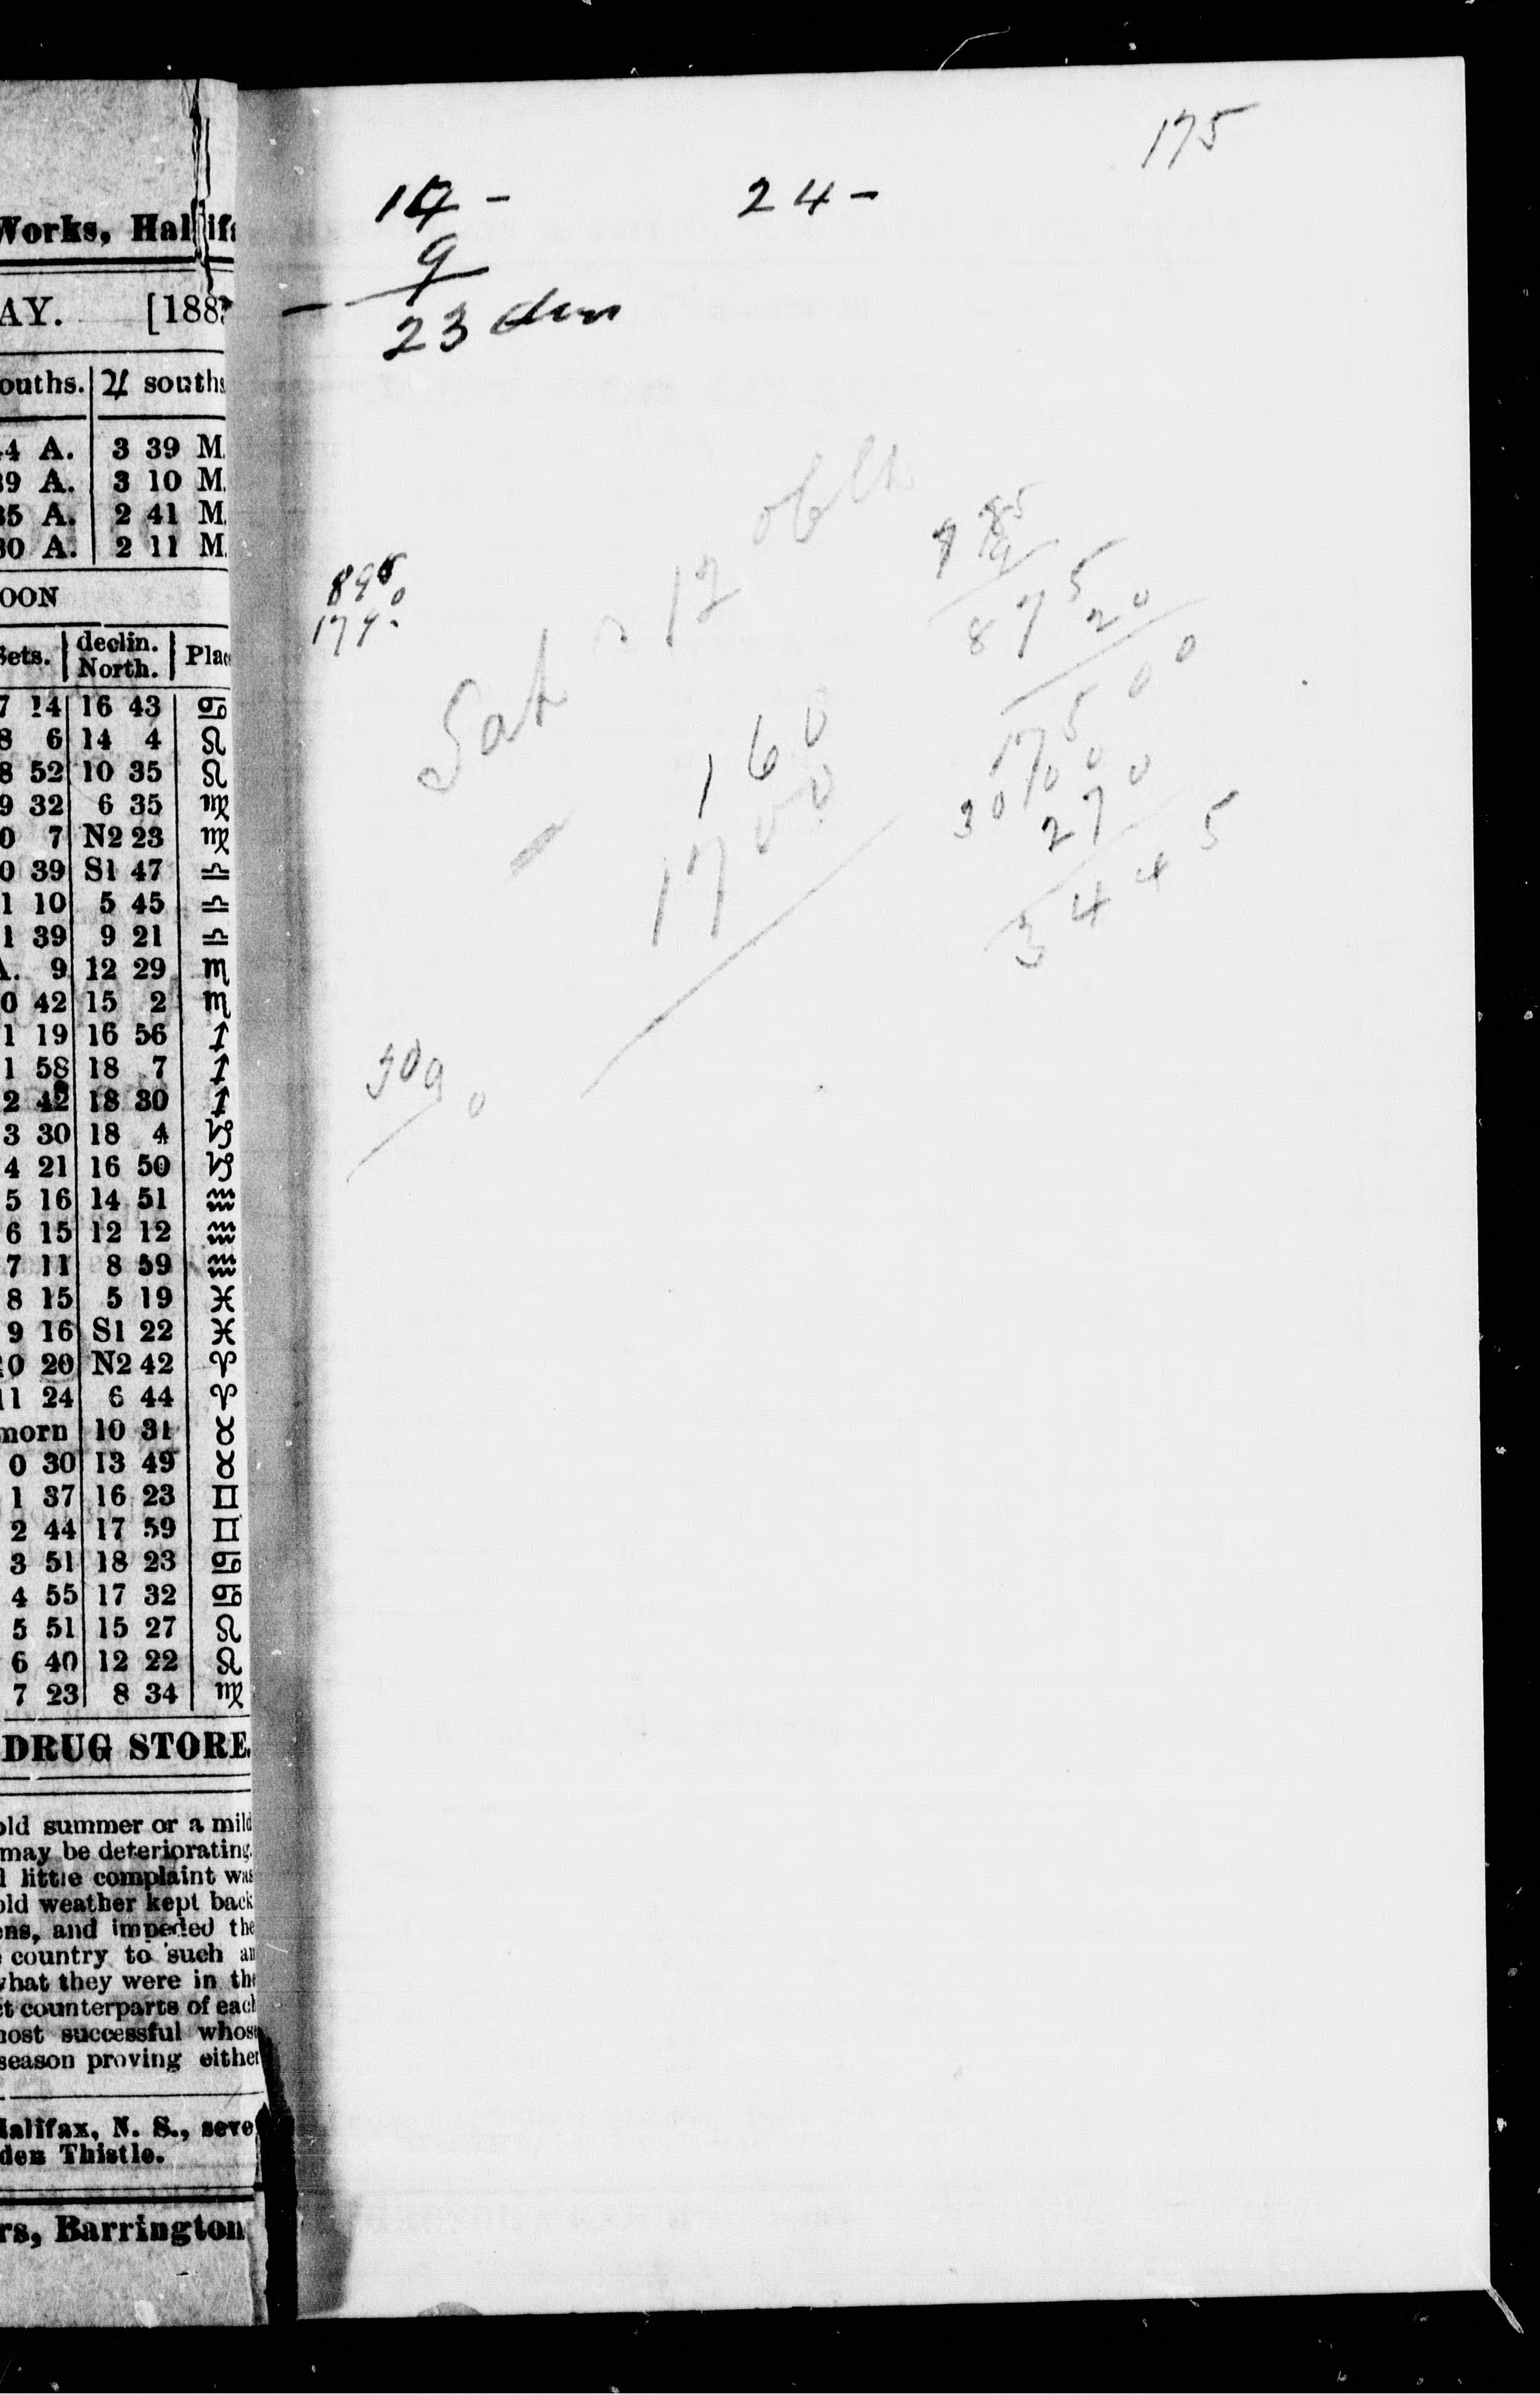 Works, Halif
AY. [188
ouths. | ♃ souths
44 A. | 3 39 M.
39 A. | 3 10 M.
35 A. | 2 41 M.
30 A. | 2 11 M.
OON
Sets. | declin. North. | Plac
7 14 | 16 43 | ♋
8 6 | 14 4 | ♌
8 52 | 10 35 | ♌
9 32 | 6 35 | ♍
0 7 | N2 23 | ♍
0 39 | S1 47 | ♎
1 10 | 5 45 | ♎
1 39 | 9 21 | ♎
A. 9 | 12 29 | ♏
0 42 | 15 2 | ♏
1 19 | 16 56 | ♐
1 58 | 18 7 | ♐
2 42 | 18 30 | ♐
3 30 | 18 4 | ♑
4 21 | 16 50 | ♑
5 16 | 14 51 | ♒
6 15 | 12 12 | ♒
7 11 | 8 59 | ♒
8 15 | 5 19 | ♓
9 16 | S1 22 | ♓
10 20 | N2 42 | ♈
11 24 | 6 44 | ♈
morn | 10 31 | ♉
0 30 | 13 49 | ♉
1 37 | 16 23 | ♊
2 44 | 17 59 | ♊
3 51 | 18 23 | ♋
4 55 | 17 32 | ♋
5 51 | 15 27 | ♌
6 40 | 12 22 | ♌
7 23 | 8 34 | ♍
DRUG STORE.
old summer or a mild
may be deteriorating.
l little complaint was
old weather kept back
ens, and impeded the
country to such an
what they were in the
ct counterparts of each
most successful whose
season proving either
Halifax, N. S., seve
den Thistle.
rs, Barrington
175
14 - 24 -
9
23
895
0
179.
Sat 12
160
1700
8 7 5
2 0
17 5 0 0
30 0 0
2 7 0
3 4 4 5
309 0